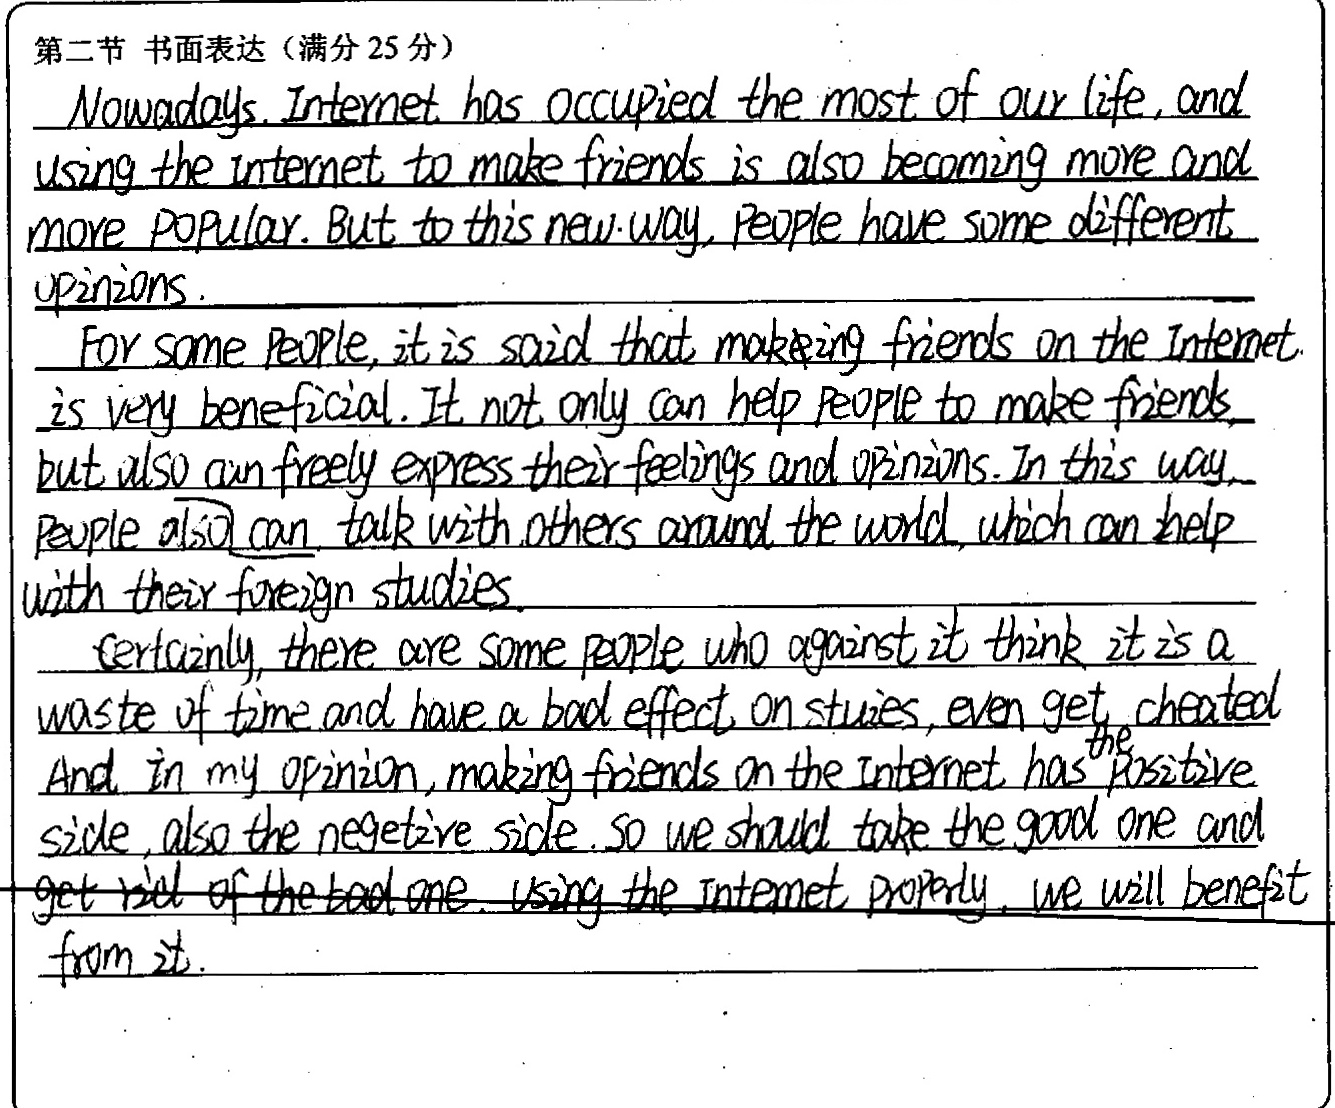 第二节 书面表达（满分 25 分）
Nowadays. Internet has occupied the most of our life, and
using the Internet to make friends is also becoming more and
more popular. But to this new way, people have some different
opinions.
For some people, it is said that making friends on the Internet
is very beneficial. It not only can help people to make friends,
but also can freely express their feelings and opinions. In this way,
people also can talk with others around the world, which can help
with their foreign studies.
Certainly, there are some people who against it think it is a
waste of time and have a bad effect on stuies, even get cheated
And in my opinion, making friends on the Internet has the positive
side, also the negetive side. So we should take the good one and
get rid of the bad one. Using the Internet properly, we will benefit
from it.